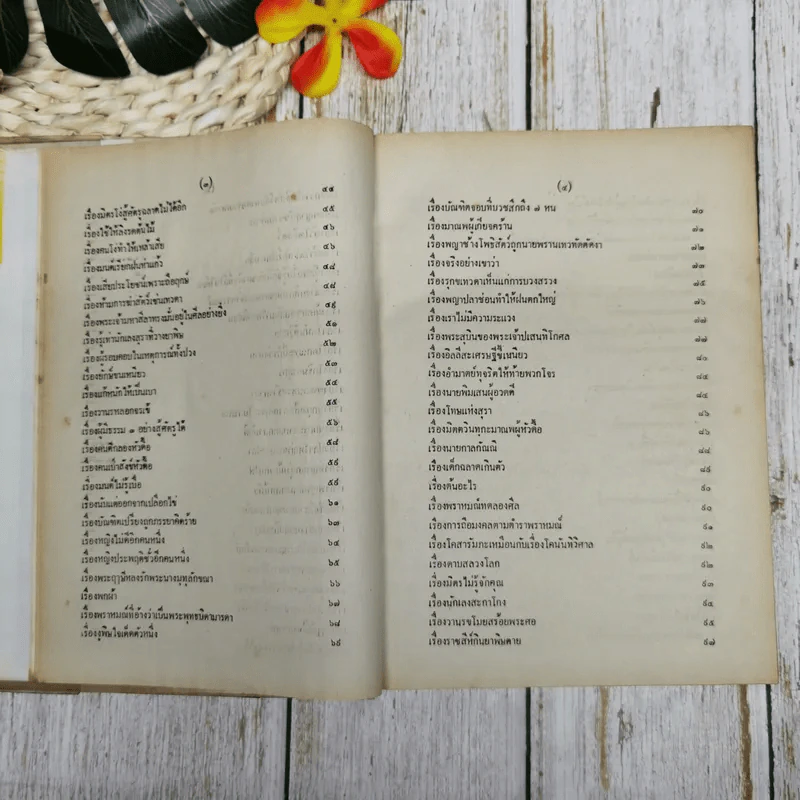 (๓)
เรื่องมิตรโง่สู้ศัตรูฉลาดไม่ได้อีก ๔๔
เรื่องใช้ให้ลิงรดต้นไม้ ๔๕
เรื่องคนโง่ทำให้เหล้าเสีย ๔๖
เรื่องมนต์เรียกฝนห่าแก้ว ๔๖
เรื่องเสียประโยชน์เพราะถือฤกษ์ ๔๘
เรื่องห้ามการฆ่าสัตว์เซ่นเทวดา ๔๘
เรื่องพระเจ้ามหาสีลวทรงมั่นอยู่ในศีลอย่างยิ่ง ๔๙
เรื่องรู้เท่านักเลงสุราที่วางยาพิษ ๕๑
เรื่องผู้รอบคอบในเหตุการณ์ทั้งปวง ๕๒
เรื่องยักษ์ขนเหนียว ๕๓
เรื่องแก้หนักให้เป็นเบา ๕๔
เรื่องวานรหลอกจรเข้ ๕๕
เรื่องผู้มีธรรม ๓ อย่างสู้ศัตรูได้ ๕๖
เรื่องคนตีกลองหัวดื้อ ๕๘
เรื่องคนเป่าสังข์หัวดื้อ ๕๙
เรื่องมนต์ไม่รู้เบื่อ ๕๙
เรื่องนับแต่ออกจากเปลือกไข่ ๖๑
เรื่องบัณฑิตเปรียงถูกภรรยาคิดร้าย ๖๓
เรื่องหญิงไม่ดีอีกคนหนึ่ง ๖๔
เรื่องหญิงประพฤติชั่วอีกคนหนึ่ง ๖๕
เรื่องพระฤๅษีหลงรักพระนางมุทุลักขณา ๖๖
เรื่องพกผ้า ๖๗
เรื่องพราหมณ์ที่อ้างว่าเป็นพระพุทธบิดามารดา ๖๘
เรื่องงูพิษใจเด็ดตัวหนึ่ง ๖๙
(๔)
เรื่องบัณฑิตจอบที่บวชสึกถึง ๗ หน ๗๐
เรื่องมาณพผู้เกียจคร้าน ๗๑
เรื่องพญาช้างโพธิสัตว์ถูกนายพรานเทวทัตตัดงา ๗๒
เรื่องจริงอย่างเขาว่า ๗๓
เรื่องรุกขเทวดาเห็นแก่การบวงสรวง ๗๕
เรื่องพญาปลาช่อนทำให้ฝนตกใหญ่ ๗๖
เรื่องเราไม่มีความระแวง ๗๗
เรื่องพระสุบินของพระเจ้าปเสนทิโกศล ๗๗
เรื่องอิลลีสะเศรษฐีขี้เหนียว ๘๑
เรื่องอำมาตย์ทุจริตให้ท้ายพวกโจร ๘๔
เรื่องนายพิมเสนผู้อวดดี ๘๔
เรื่องโทษแห่งสุรา ๘๖
เรื่องมิตตวินทุกะมาณพผู้หัวดื้อ ๘๖
เรื่องนายกาลกัณณิ ๘๘
เรื่องเด็กฉลาดเกินตัว ๘๙
เรื่องต้นอะไร ๙๐
เรื่องพราหมณ์ทดลองศีล ๙๐
เรื่องการถือมงคลตามตำราพราหมณ์ ๙๑
เรื่องโคสารัมภะเหมือนกับเรื่องโคนันทิวิศาล ๙๒
เรื่องดาบสลวงโลก ๙๒
เรื่องมิตรไม่รู้จักคุณ ๙๓
เรื่องนักเลงสะกาโกง ๙๔
เรื่องวานรขโมยสร้อยพระศอ ๙๕
เรื่องราชสีห์กินยาพิษตาย ๙๗